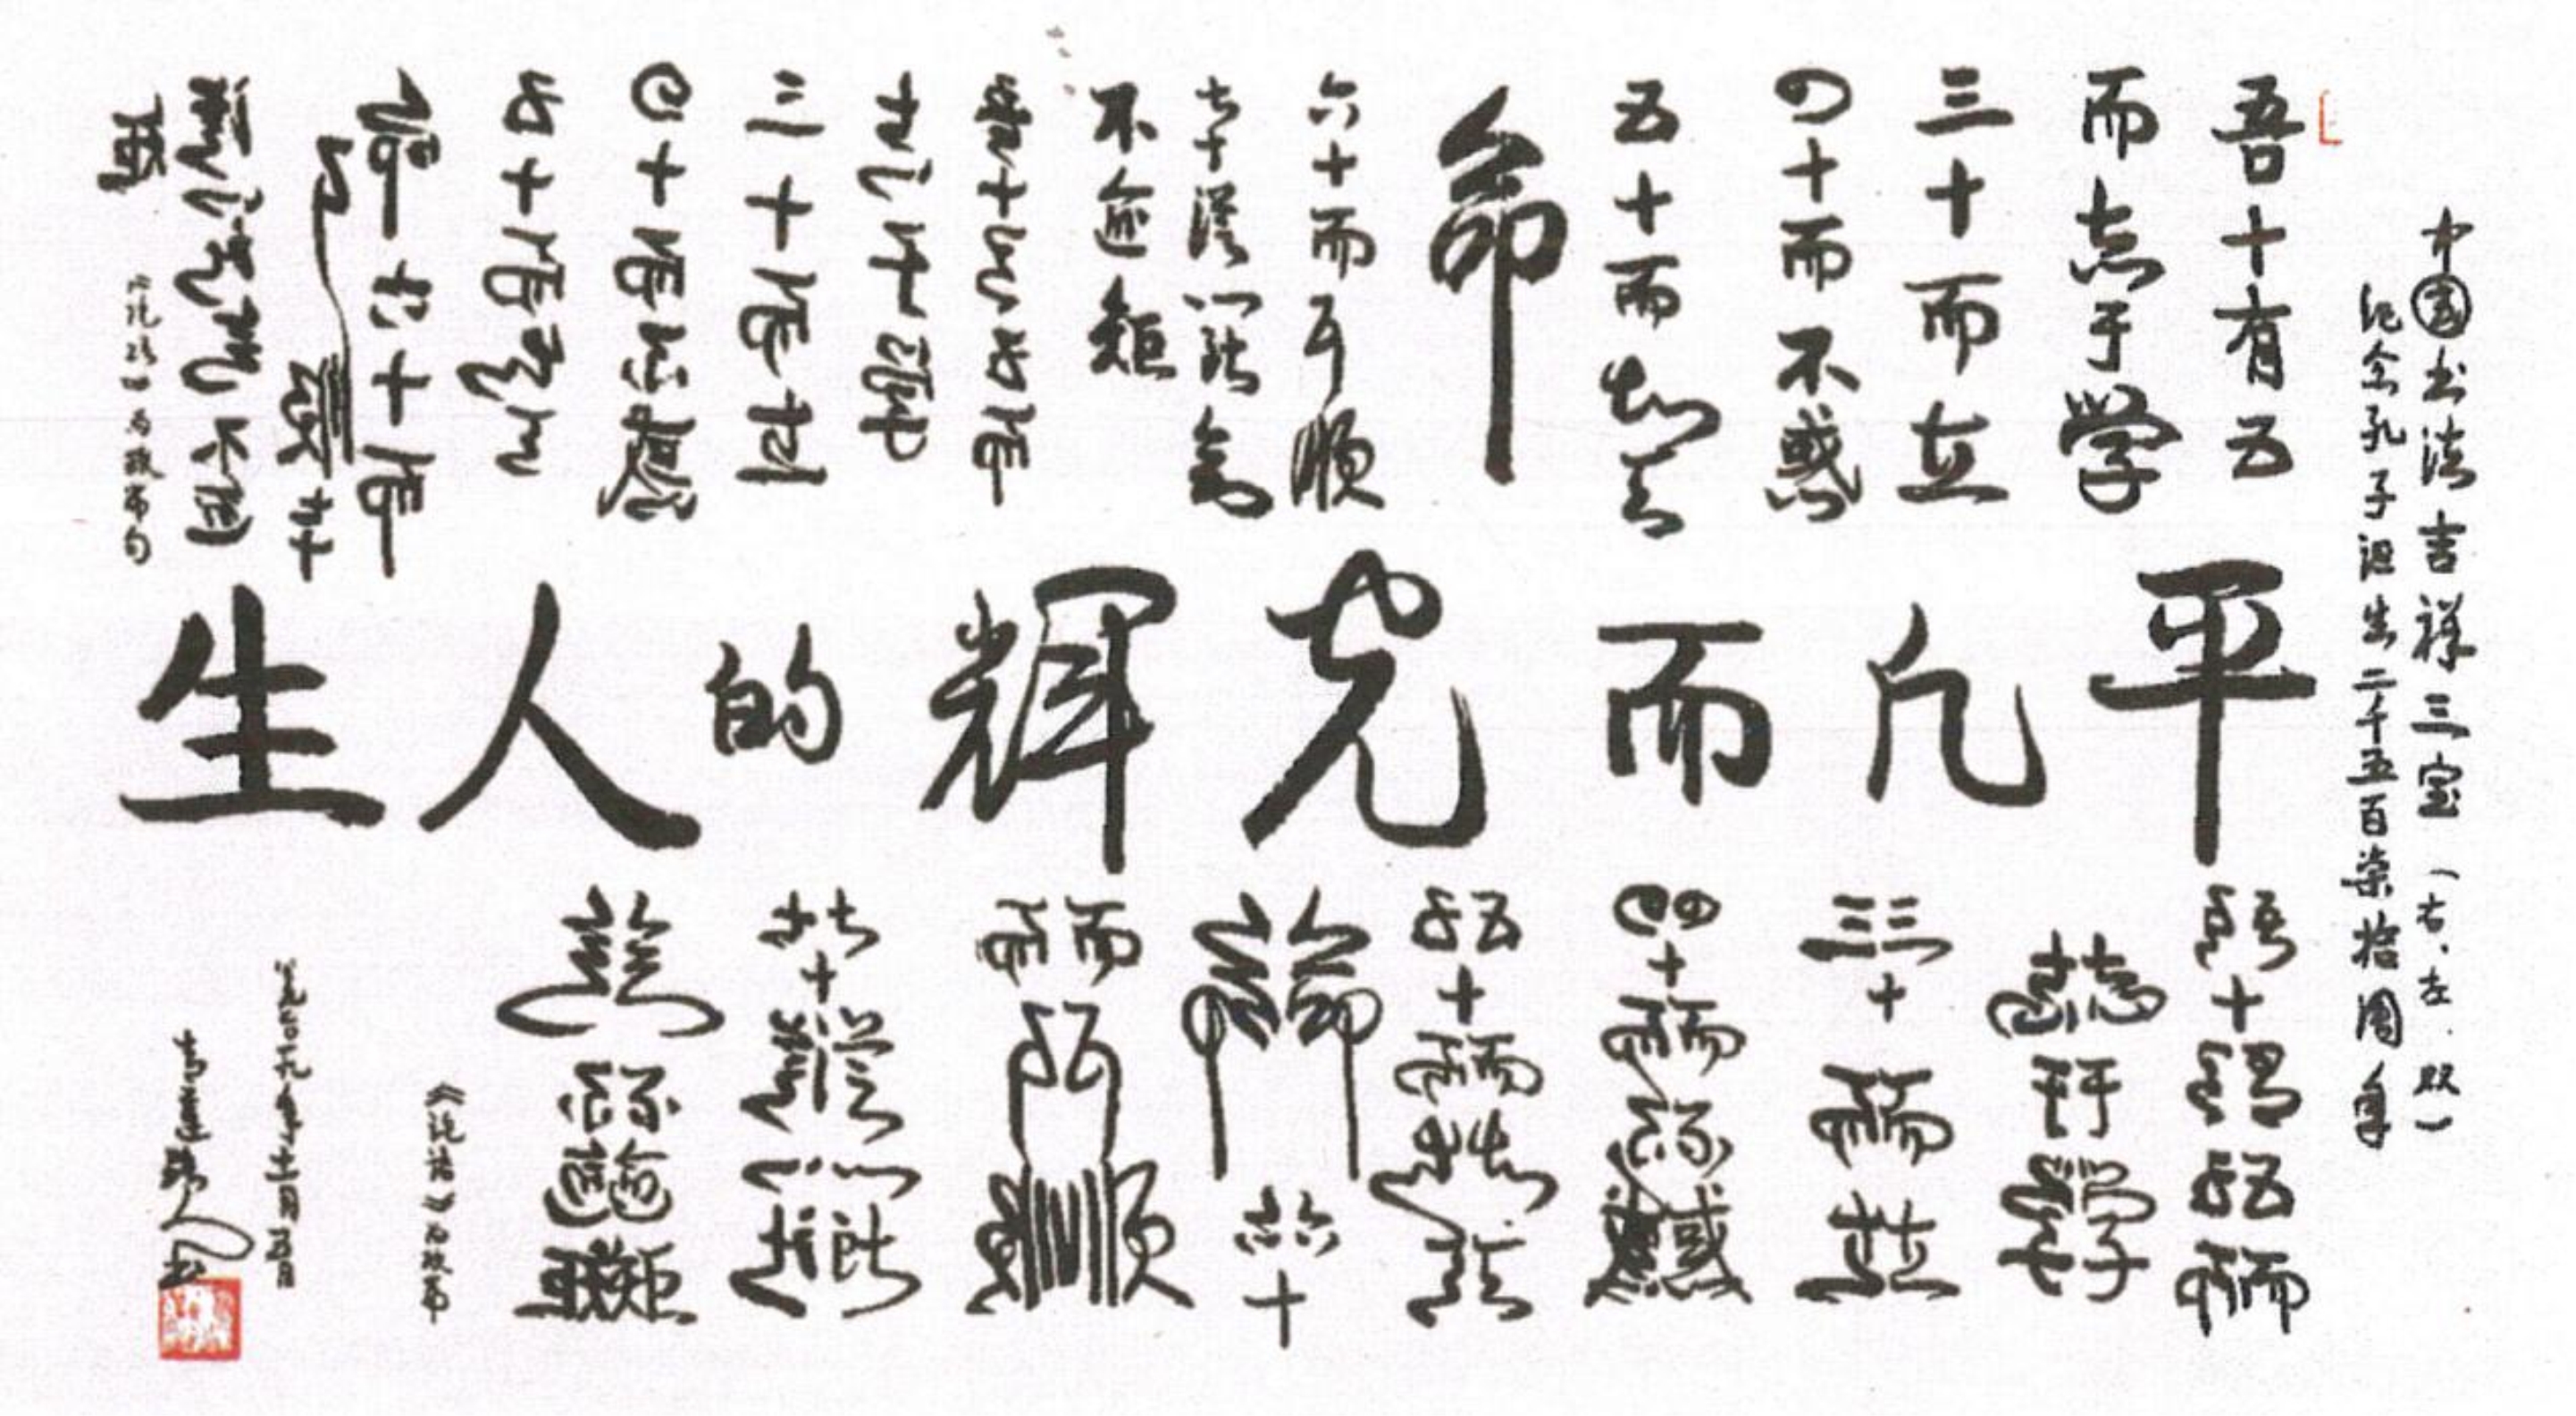 中国书法吉祥三宝（右、左、双）
纪念孔子诞生二千五百柒拾周年
吾十有五
而志于学
三十而立
四十而不惑
五十而知天
命
六十而耳顺
七十從心所欲
不逾矩
吾十有五而
志于学
三十而立
四十而不惑
五十而知天
命六十而
耳顺七十
從心所欲不逾
矩
《论语》为政
平凡而光辉的人生
吾十有五而
志于学
三十而立
四十而不惑
五十而知天
命六十
而耳顺
七十從心所
欲不逾矩
《论语》为政